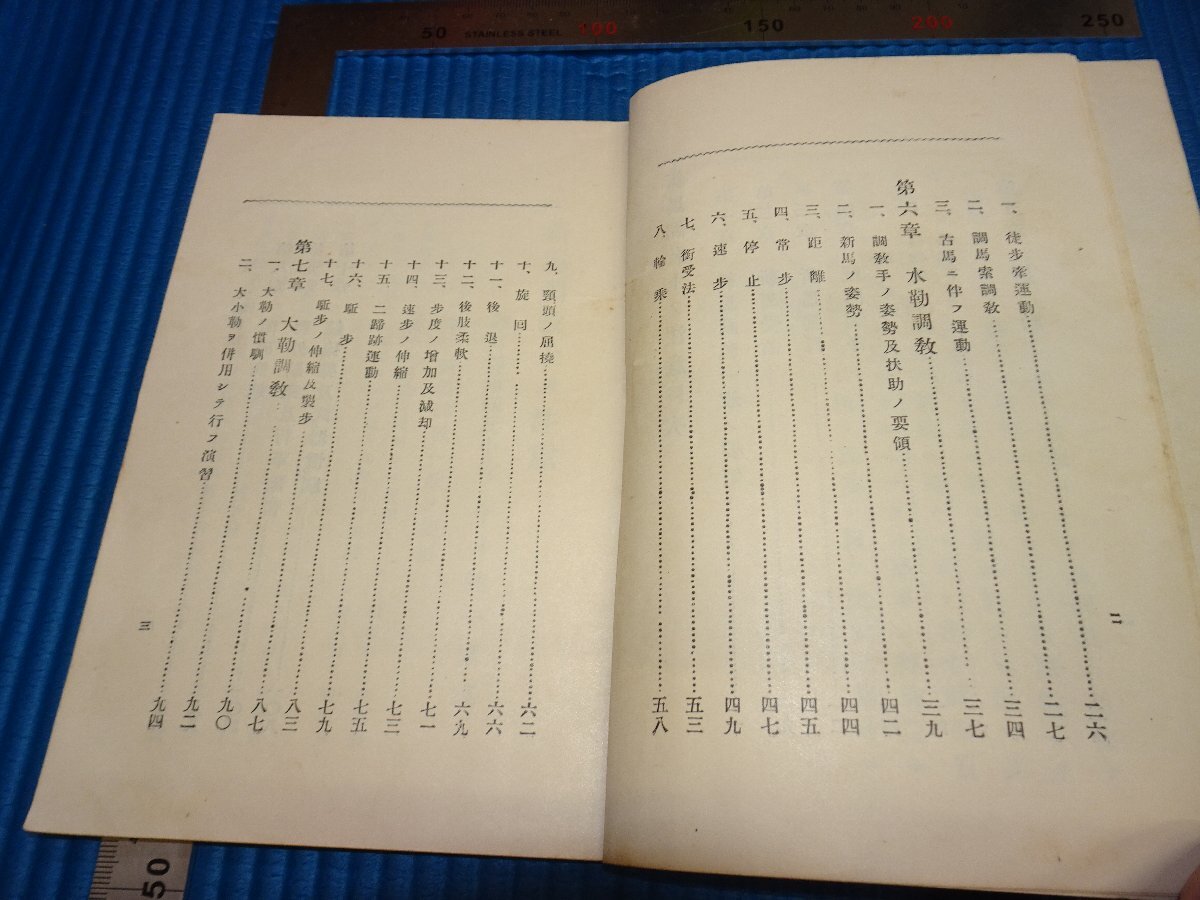 50 STAINLESS STEEL 100 150 200 250
一、徒步牽運動……二六
二、調馬索調敎……二七
三、古馬ニ伴フ運動……三四
第六章 水勒調敎……三七
一、調敎手ノ姿勢及扶助ノ要領……三九
二、新馬ノ姿勢……四二
三、距離……四四
四、常步……四五
五、停止……四七
六、速步……四九
七、銜受法……五三
八、輪乘……五八
二
九、頸頭ノ屈撓……六二
十、旋回……六六
十一、後退……六九
十二、後肢柔軟……七一
十三、步度ノ增加及減却……七三
十四、速步ノ伸縮……七五
十五、二蹄跡運動……七九
十六、駈步……八三
十七、駈步ノ伸縮及襲步……八七
第七章 大勒調敎……九〇
一、大勒ノ慣馴……九二
二、大小勒ヲ併用シテ行フ演習……九四
三
50